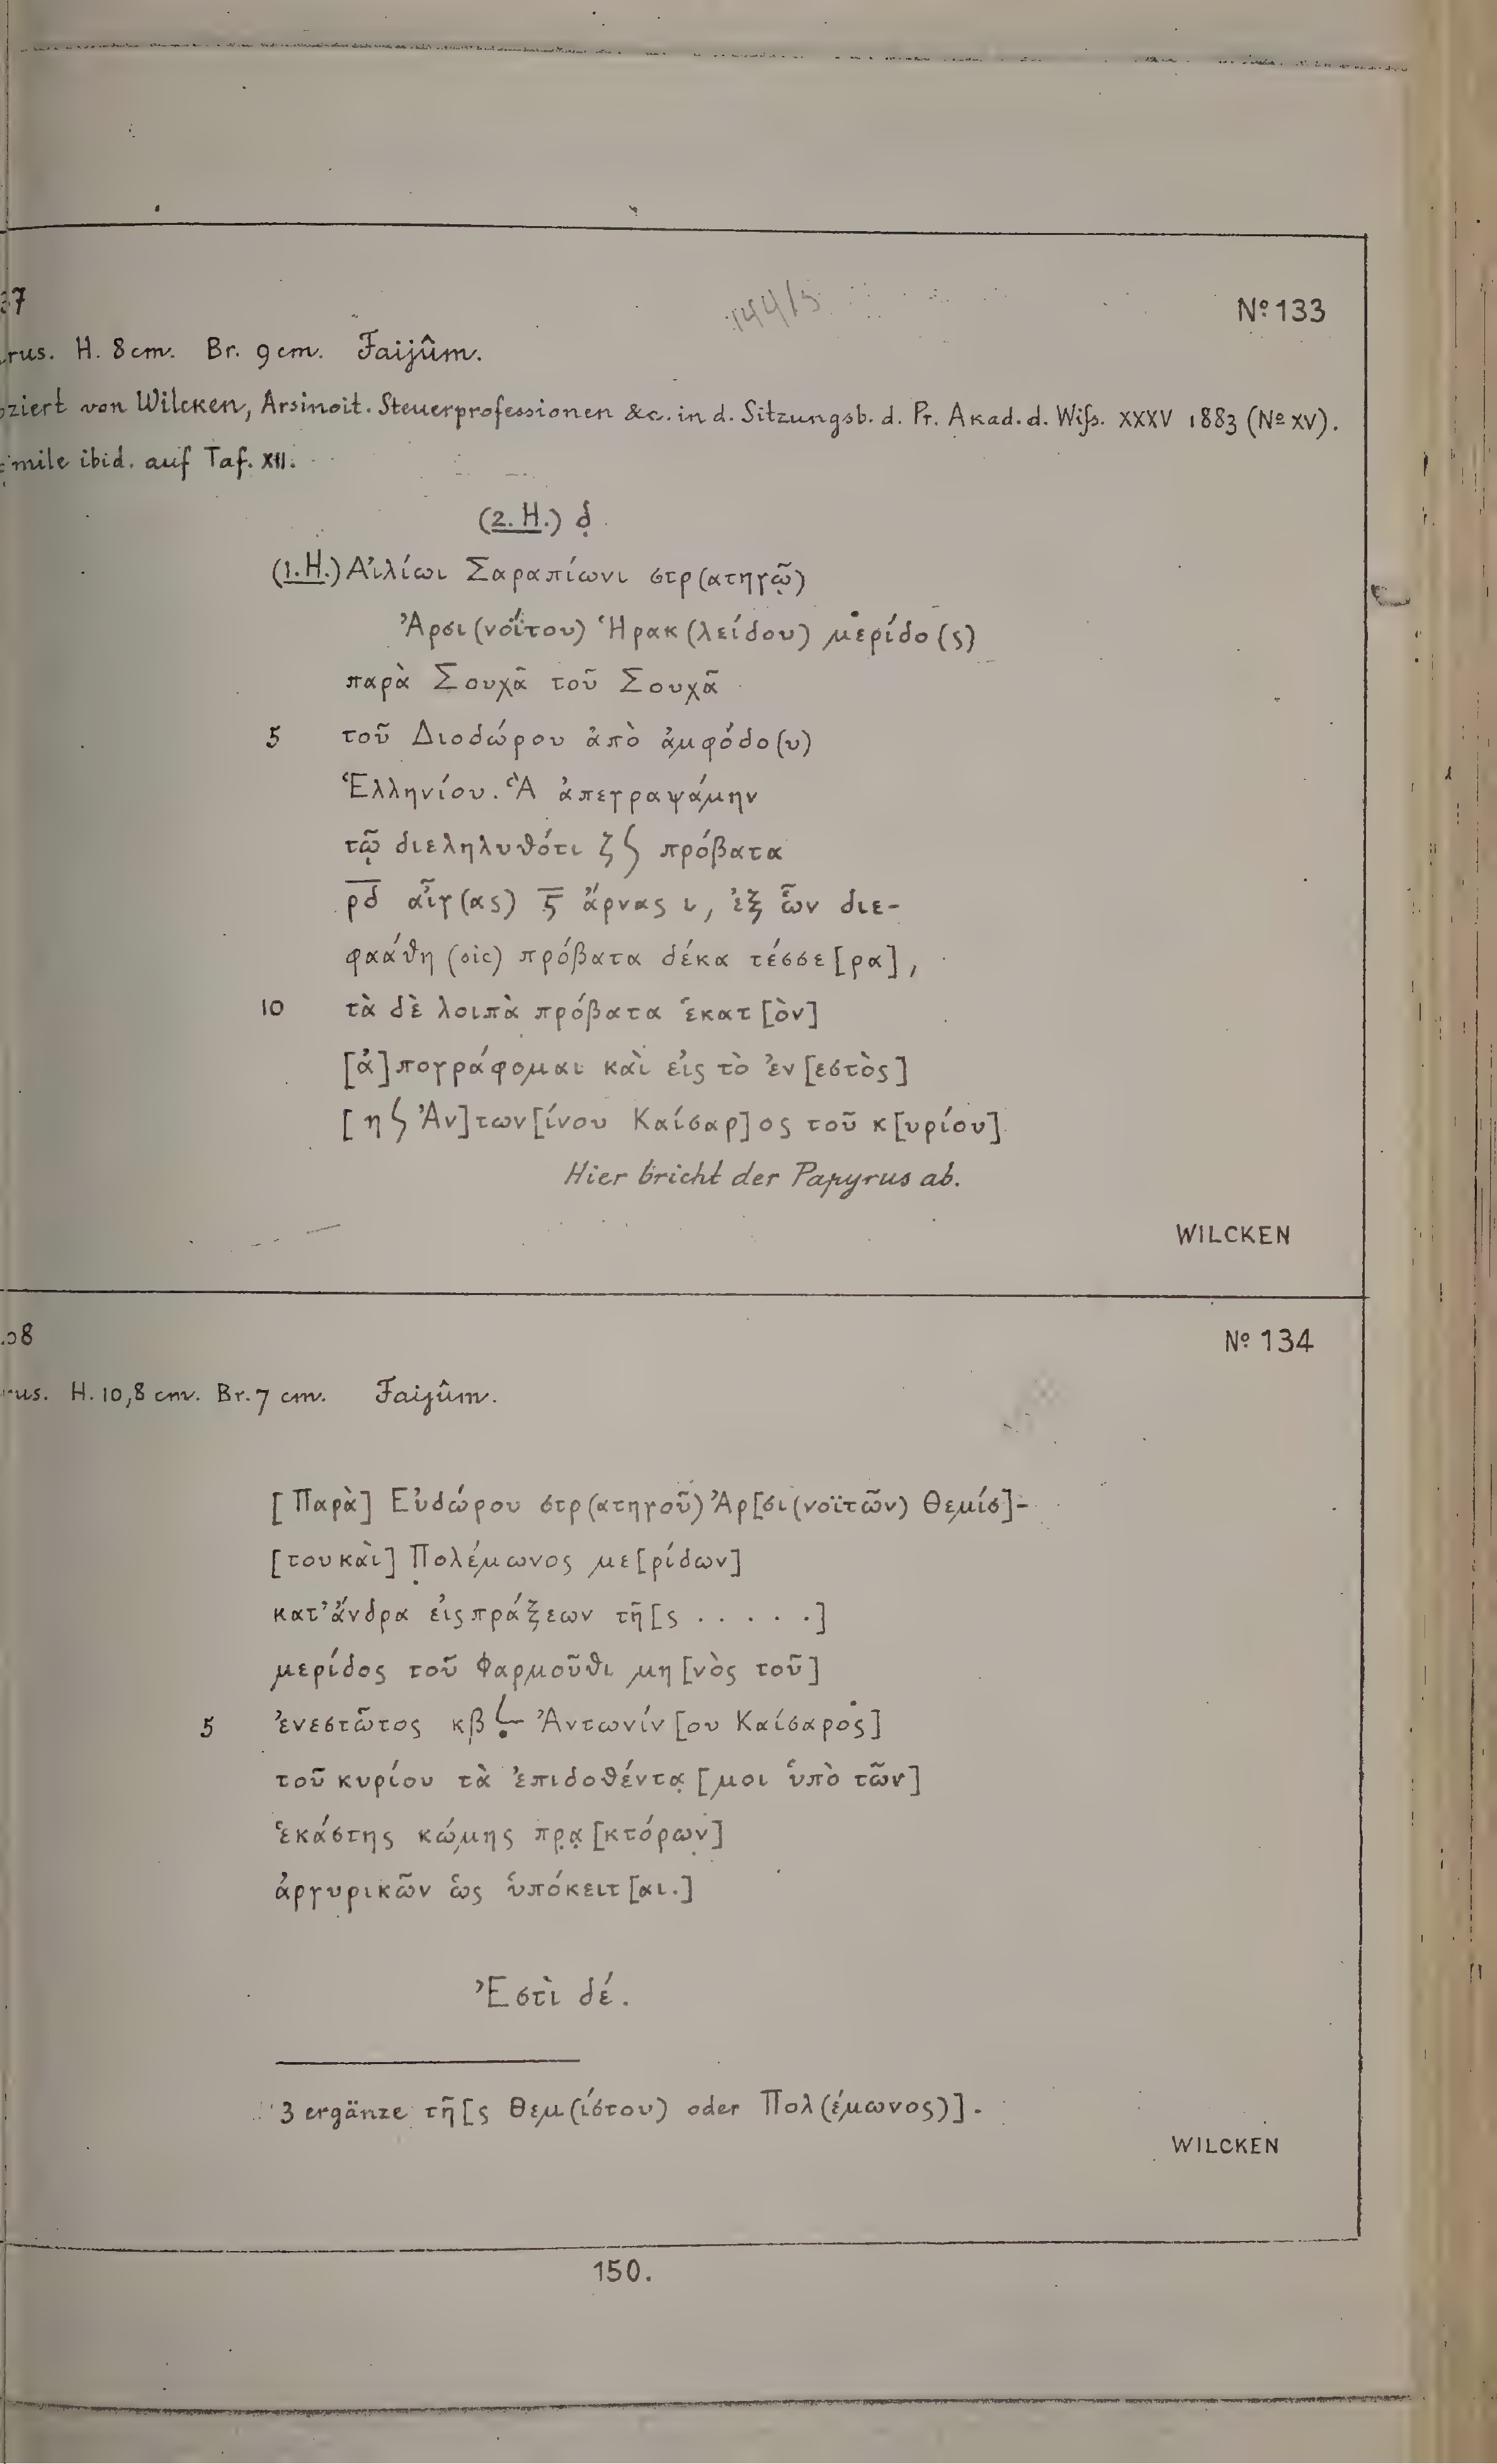 37
No 133
rus. H. 8 cm. Br. 9 cm. Faijûm.
ziert von Wilcken, Arsinoit. Steuerprofessionen &c. in d. Sitzungsb. d. Pr. Akad. d. Wiss. XXXV 1883 (No XV).
mile ibid. auf Taf. XII.
(2. H.) δ̣
(1. H.) Αἰλίωι Σαραπίωνι στρ(ατηγῷ)
Ἀρσι(νοΐτου) Ἡρακ(λείδου) μερίδο(ς)
παρὰ Σουχᾶ τοῦ Σουχᾶ
5 τοῦ Διοδώρου ἀπὸ ἀμφόδο(υ)
Ἑλληνίου. Ἃ ἀπεγραψάμην
τῷ διεληλυθότι ζ ϛ πρόβατα
ρ̅δ̅ αἶγ(ας) ϛ̅ ἄρνας ι, ἐξ ὧν διε-
φαάθη (sic) πρόβατα δέκα τέσσε[ρα],
10 τὰ δὲ λοιπὰ πρόβατα ἑκατ[ὸν]
[ἀ]πογράφομαι καὶ εἰς τὸ ἐν[εστὸς]
[η ϛ Ἀν]των[ίνου Καίσαρ]ος τοῦ κ[υρίου]
Hier bricht der Papyrus ab.
WILCKEN
8
No 134
rus. H. 10,8 cm. Br. 7 cm. Faijûm.
[Παρὰ] Εὐδώρου στρ(ατηγοῦ) Ἀρ[σι(νοϊτῶν) Θεμίσ]-
[του καὶ] Πολέμωνος με[ρίδων]
κατ’ ἄνδρα εἰςπράξεων τῆ[ς . . . . .]
μερίδος τοῦ Φαρμοῦθι μη[νὸς τοῦ]
5 ἐνεστῶτος κβ ϛ Ἀντωνίν[ου Καίσαρος]
τοῦ κυρίου τὰ ἐπιδοθέντα̣ [μοι ὑπὸ τῶν]
ἑκάστης κώμης πρ̣α̣[κτόρων]
ἀργυρικῶν ὡς ὑπόκειτ[αι.]
Ἐστὶ δέ.
3 ergänze τῆ[ς Θεμ(ίστου) oder Πολ(έμωνος)].
WILCKEN
150.